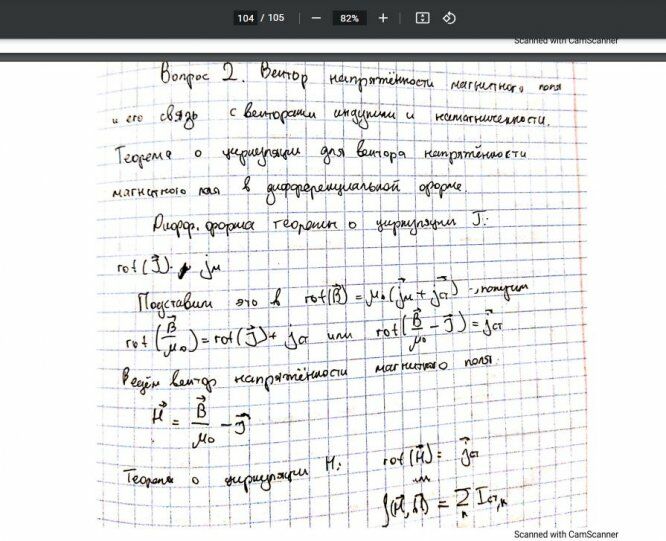 104 / 105 — 82% +
Scanned with CamScanner
Вопрос 2. Вектор напряжённости магнитного поля
и его связь с векторами индукции и намагниченности.
Теорема о циркуляции для вектора напряжённости
магнитного поля в дифференциальной форме.
Дифф. форма теоремы о циркуляции J⃗:
rot(J⃗) = jм
Подставим это в rot(B⃗) = μ₀(j⃗м + j⃗ст), получим
rot(B⃗/μ₀) = rot(J⃗) + jст или rot(B⃗/μ₀ − J⃗) = j⃗ст
Ведём вектор напряжённости магнитного поля.
H⃗ = B⃗/μ₀ − J⃗
Теорема о циркуляции H: rot(H⃗) = j⃗ст
или
∫(H⃗, ) = Σₖ Iст,ₖ
Scanned with CamScanner